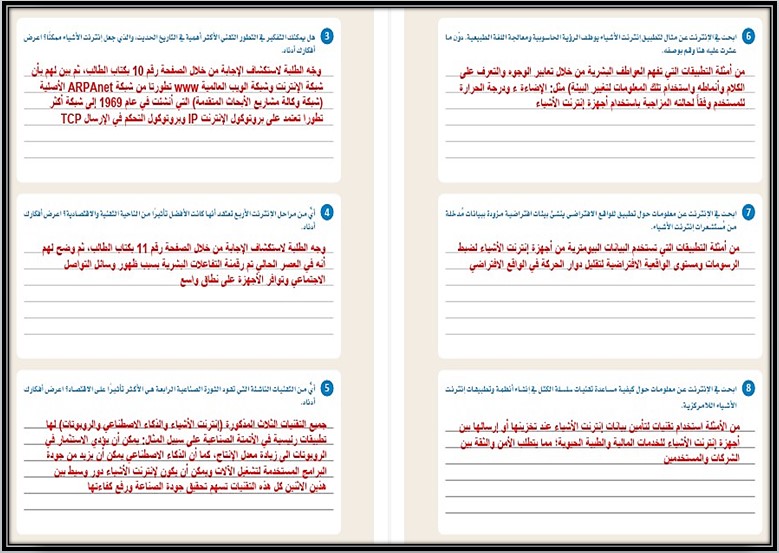 3 هل يمكنك التفكير في التطور التقني الأكثر أهمية في التاريخ الحديث، والذي جعل إنترنت الأشياء ممكنًا؟ اعرض
أفكارك أدناه.
وجه الطلبة لاستكشاف الإجابة من خلال الصفحة رقم 10 بكتاب الطالب، ثم بين لهم بأن
شبكة الإنترنت وشبكة الويب العالمية www تطورتا من شبكة ARPAnet الأصلية
(شبكة وكالة مشاريع الأبحاث المتقدمة) التي أنشئت في عام 1969 إلى شبكة أكثر
تطورا تعتمد على بروتوكول الإنترنت IP وبروتوكول التحكم في الإرسال TCP
4 أيٌّ من مراحل الإنترنت الأربع تعتقد أنها كانت الأفضل تأثيرًا من الناحية التقنية والاقتصادية؟ اعرض أفكارك
أدناه.
وجه الطلبة لاستكشاف الإجابة من خلال الصفحة رقم 11 بكتاب الطالب، ثم وضح لهم
أنه في العصر الحالي تم رقمنة التفاعلات البشرية بسبب ظهور وسائل التواصل
الاجتماعي وتوافر الأجهزة على نطاق واسع
5 أيٌّ من التقنيات الناشئة التي تقود الثورة الصناعية الرابعة هي الأكثر تأثيرًا على الاقتصاد؟ اعرض أفكارك
أدناه.
جميع التقنيات الثلاث المذكورة (إنترنت الأشياء والذكاء الاصطناعي والروبوتات) لها
تطبيقات رئيسية في الأتمتة الصناعية على سبيل المثال: يمكن أن يؤدي الاستثمار في
الروبوتات الى زيادة معدل الإنتاج، كما أن الذكاء الاصطناعي يمكن أن يزيد من جودة
البرامج المستخدمة لتشغيل الآلات ويمكن أن يكون لإنترنت الأشياء دور وسيط بين
هذين الاثنين كل هذه التقنيات تسهم تحقيق جودة الصناعة ورفع كفاءتها
6 ابحث في الإنترنت عن مثال لتطبيق إنترنت الأشياء يوظف الرؤية الحاسوبية ومعالجة اللغة الطبيعية. دوّن ما
عثرت عليه هنا وقم بوصفه.
من أمثلة التطبيقات التي تفهم العواطف البشرية من خلال تعابير الوجوه والتعرف على
الكلام وأنماطه واستخدام تلك المعلومات لتغيير البيئة) مثل: الإضاءة ء ودرجة الحرارة
للمستخدم وفقاً لحالته المزاجية باستخدام أجهزة إنترنت الأشياء
7 ابحث في الإنترنت عن معلومات حول تطبيق للواقع الافتراضي ينشئ بيئات افتراضية مزودة ببيانات مُدخلة
من مُستشعرات إنترنت الأشياء.
من أمثلة التطبيقات التي تستخدم البيانات البيومترية من أجهزة إنترنت الأشياء لضبط
الرسومات ومستوي الواقعية الافتراضية لتقليل دوار الحركة في الواقع الافتراضي
8 ابحث في الإنترنت عن معلومات حول كيفية مساعدة تقنيات سلسلة الكتل في إنشاء أنظمة وتطبيقات إنترنت
الأشياء اللامركزية.
من الأمثلة استخدام تقنيات لتأمين بيانات إنترنت الأشياء عند تخزينها أو إرسالها بين
أجهزة إنترنت الأشياء للخدمات المالية والطبية الحيوية؛ مما يتطلب الأمن والثقة بين
الشركات والمستخدمين